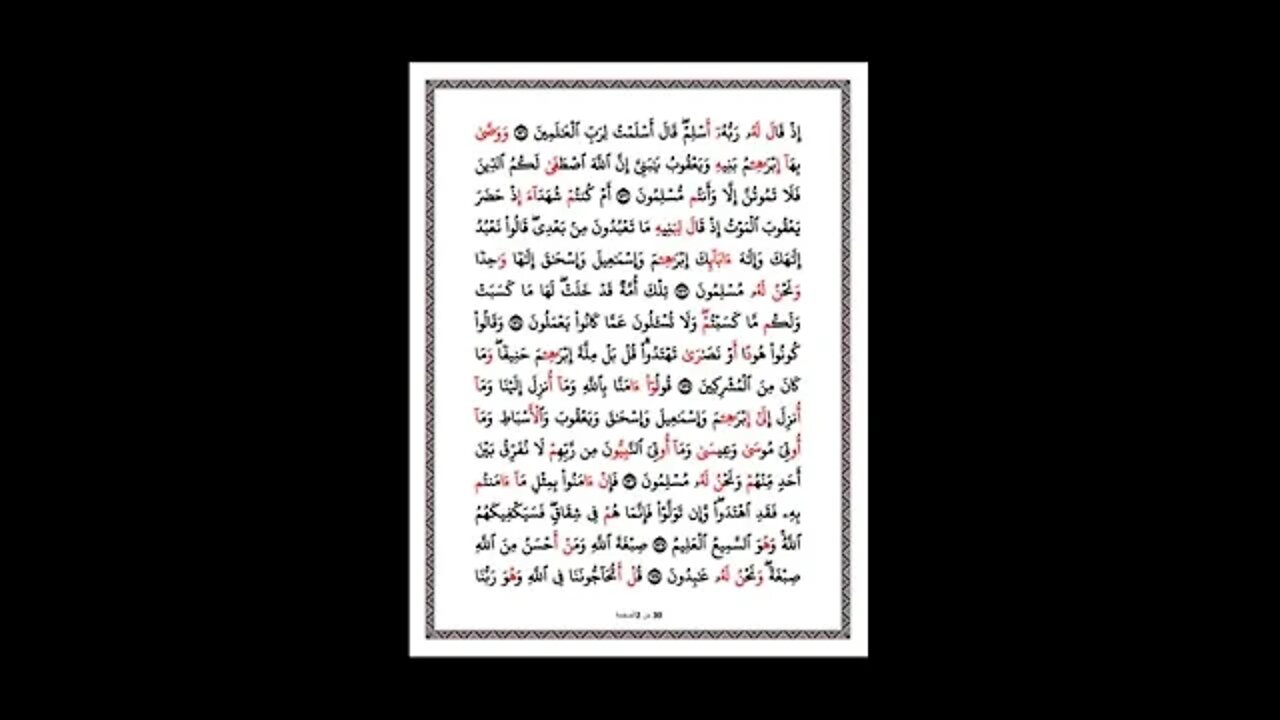 إِذْ قَالَ لَهُۥ رَبُّهُۥٓ أَسْلِمْۖ قَالَ أَسْلَمْتُ لِرَبِّ ٱلْعَٰلَمِينَ وَوَصَّىٰ
بِهَآ إِبْرَٰهِـۧمُ بَنِيهِ وَيَعْقُوبُ يَٰبَنِىَّ إِنَّ ٱللَّهَ ٱصْطَفَىٰ لَكُمُ ٱلدِّينَ
فَلَا تَمُوتُنَّ إِلَّا وَأَنتُم مُّسْلِمُونَ أَمْ كُنتُمْ شُهَدَآءَ إِذْ حَضَرَ
يَعْقُوبَ ٱلْمَوْتُ إِذْ قَالَ لِبَنِيهِ مَا تَعْبُدُونَ مِنۢ بَعْدِىۖ قَالُوا۟ نَعْبُدُ
إِلَٰهَكَ وَإِلَٰهَ ءَابَآئِكَ إِبْرَٰهِـۧمَ وَإِسْمَٰعِيلَ وَإِسْحَٰقَ إِلَٰهًا وَٰحِدًا
وَنَحْنُ لَهُۥ مُسْلِمُونَ تِلْكَ أُمَّةٌ قَدْ خَلَتْۖ لَهَا مَا كَسَبَتْ
وَلَكُم مَّا كَسَبْتُمْۖ وَلَا تُسْـَٔلُونَ عَمَّا كَانُوا۟ يَعْمَلُونَ وَقَالُوا۟
كُونُوا۟ هُودًا أَوْ نَصَٰرَىٰ تَهْتَدُوا۟ۗ قُلْ بَلْ مِلَّةَ إِبْرَٰهِـۧمَ حَنِيفًاۖ وَمَا
كَانَ مِنَ ٱلْمُشْرِكِينَ قُولُوٓا۟ ءَامَنَّا بِٱللَّهِ وَمَآ أُنزِلَ إِلَيْنَا وَمَآ
أُنزِلَ إِلَىٰٓ إِبْرَٰهِـۧمَ وَإِسْمَٰعِيلَ وَإِسْحَٰقَ وَيَعْقُوبَ وَٱلْأَسْبَاطِ وَمَآ
أُوتِىَ مُوسَىٰ وَعِيسَىٰ وَمَآ أُوتِىَ ٱلنَّبِيُّونَ مِن رَّبِّهِمْ لَا نُفَرِّقُ بَيْنَ
أَحَدٍ مِّنْهُمْ وَنَحْنُ لَهُۥ مُسْلِمُونَ فَإِنْ ءَامَنُوا۟ بِمِثْلِ مَآ ءَامَنتُم
بِهِۦ فَقَدِ ٱهْتَدَوا۟ۖ وَّإِن تَوَلَّوْا۟ فَإِنَّمَا هُمْ فِى شِقَاقٍۖ فَسَيَكْفِيكَهُمُ
ٱللَّهُۚ وَهُوَ ٱلسَّمِيعُ ٱلْعَلِيمُ صِبْغَةَ ٱللَّهِ وَمَنْ أَحْسَنُ مِنَ ٱللَّهِ
صِبْغَةًۖ وَنَحْنُ لَهُۥ عَٰبِدُونَ قُلْ أَتُحَآجُّونَنَا فِى ٱللَّهِ وَهُوَ رَبُّنَا
الصفحة 2 من 30